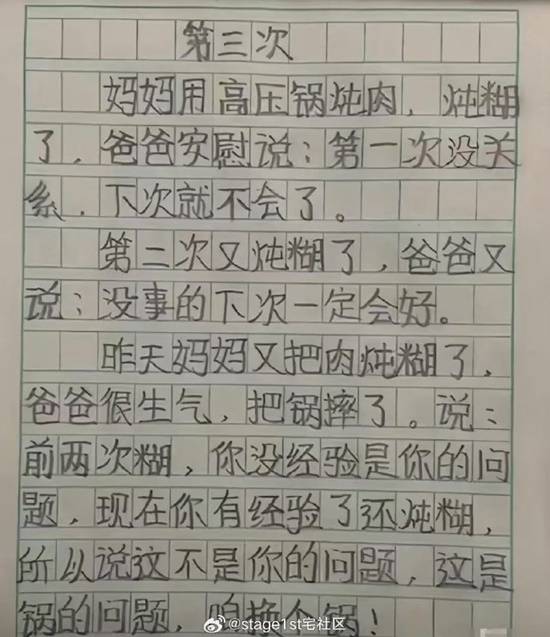 第三次
妈妈用高压锅炖肉，炖糊
了，爸爸安慰说：第一次没关
系，下次就不会了。
第二次又炖糊了，爸爸又
说：没事的下次一定会好。
昨天妈妈又把肉炖糊了，
爸爸很生气，把锅摔了。说：
前两次糊，你没经验是你的问
题，现在你有经验了还炖糊，
所以说这不是你的问题，这是
锅的问题，咱换个锅！
@stage1st宅社区